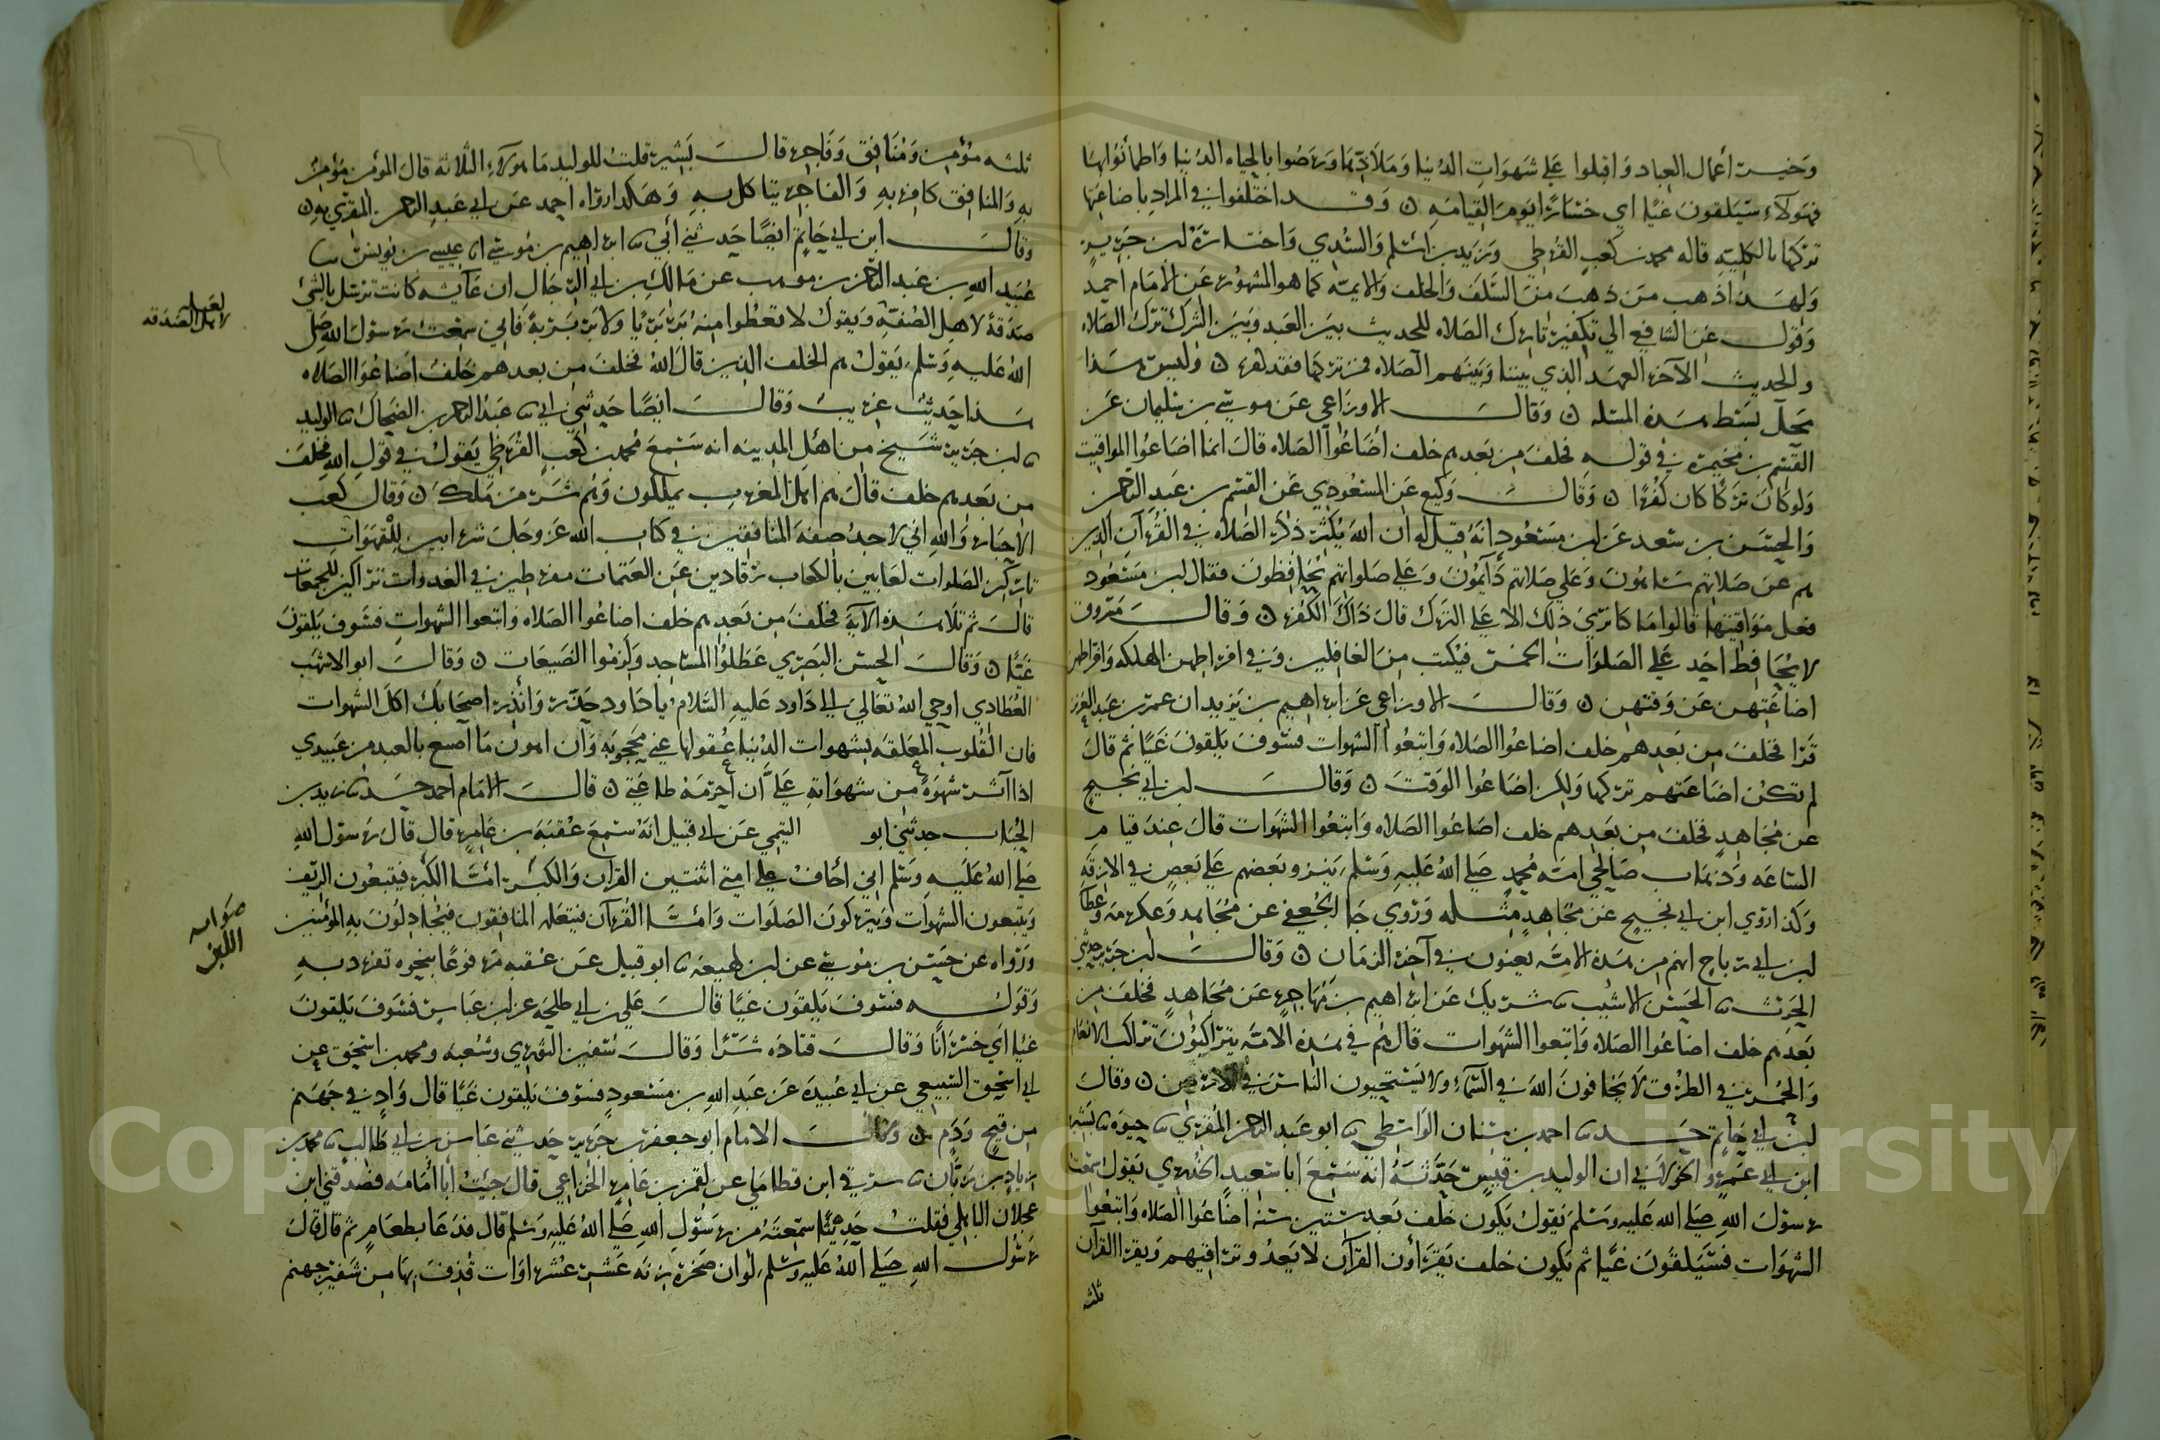 وخيرت أعمال العباد واقبلوا علي شهوات الدنيا وملاذها ورضوا بالحياه الدنيا واطمأنوا بها
فهولاء سيلقون غيا اي خسارا يوم القيامه ن وقد اختلفوا في المراد باضاعتها
تركها بالكليه قاله محمد بن كعب القرظي وزيد بن اسلم والسدي واختاره ابن جرير
ولهذا ذهب من ذهب من السلف والخلف والايمه كما هو المشهور عن الامام احمد
وقول عن الشافعي الي تكفير تارك الصلاه للحديث بين العبد وبين الشرك ترك الصلاه
والحديث الآخر العهد الذي بيننا وبينهم الصلاه فمن تركها فقد كفر ن وليس هذا
محل بسط هذه المسله ن وقال الاوزاعي عن موسي بن سليمان عن
القسم بن مخيمره في قوله فخلف من بعدهم خلف أضاعوا الصلاه قال انما اضاعوا المواقيت
ولو كان تركا كان كفرا ن وقال وكيع عن المسعودي عن القسم بن عبد الرحمن
والحسن بن سعد عن ابن مسعود انه قيل له ان الله يكثر ذكر الصلاه في القرآن الذين
هم عن صلاتهم ساهون وعلي صلاتهم دآيمون وعلي صلواتهم يحافظون فقال ابن مسعود
فعل مواقيتها قالوا ما كنا نري ذلك الا علي الترك قال ذاك الكفر ن وقال مسروق
لا يحافظ احد علي الصلوات الخمس فيكتب من الغافلين وفي افراطهن الهلكه وافراطهن
اضاعتهن عن وقتهن ن وقال الاوزاعي عن ابراهيم بن يزيد ان عمر بن عبد العزيز
قرا فخلف من بعدهم خلف اضاعوا الصلاه واتبعوا الشهوات فسوف يلقون غيا ثم قال
لم تكن اضاعتهم تركها ولكن اضاعوا الوقت ن وقال ابن ابي نجيح
عن مجاهد فخلف من بعدهم خلف اضاعوا الصلاه واتبعوا الشهوات قال عند قيام
الساعه وذهاب صالحي امه محمد صلي الله عليه وسلم ينزو بعضهم علي بعض في الازقه
وكذا روي ابن ابي نجيح عن مجاهد مثله وروي جابر الجعفي عن مجاهد وعكرمه وعطا
ابن ابي رباح انهم من هذه الامه يعنون في آخر الزمان ن وقال ابن جرير حدثني
الحرث ثنا الحسن الاشيب ثنا شريك عن ابراهيم بن مهاجر عن مجاهد فخلف من
بعدهم خلف اضاعوا الصلاه واتبعوا الشهوات قال هم في هذه الامه يتراكبون تراكب الانعام
والحمر في الطرق لا يخافون الله في السماء ولا يستحيون الناس في الارض ن وقال
ابن ابي حاتم حدثنا احمد بن سنان الواسطي ثنا ابو عبد الرحمن المقري ثنا حيوه ثنا بشير
ابن ابي عمرو الخولاني ان الوليد بن قيس حدثه انه سمع ابا سعيد الخدري يقول سمعت
رسول الله صلي الله عليه وسلم يقول يكون خلف بعد ستين سنه اضاعوا الصلاه واتبعوا
الشهوات فسيلقون غيا ثم يكون خلف يقرأون القرآن لا يعدو تراقيهم ويقرا القرآن
ثلثه
ثلثه مؤمن ومنافق وفاجر قال بشير قلت للوليد ما هولاء الثلاثه قال المؤمن مؤمن
به والمنافق كافر به والفاجر يتاكل به وهكذا رواه احمد عن ابي عبد الرحمن المقري به ن
وقال ابن ابي حاتم ايضا حدثني أبي ثنا ابراهيم بن موسي انا عيسي بن يونس ثنا
عبيد الله بن عبد الرحمن بن موهب عن مالك بن ابي الرجال ان عآيشه كانت ترسل بالشئ
صدقه لاهل الصفه وتقول لا تعطوا منه بربريا ولا بربريه فاني سمعت رسول الله صلي
الله عليه وسلم يقول هم الخلف الذين قال الله فخلف من بعدهم خلف اضاعوا الصلاه
هذا حديث غريب وقال ايضا حدثني ابي ثنا عبد الرحمن بن الضحاك ثنا الوليد
ثنا ابن جرير شيخ من اهل المدينه انه سمع محمد بن كعب القرظي يقول في قول الله فخلف
من بعدهم خلف قال هم اهل المغرب يملكون وهم شر من ملك ن وقال كعب
الاحبار والله اني لاجد صفه المنافقين في كتاب الله عز وجل شرابين للقهوات
تاركين الصلوات لعابين بالكعاب رقادين عن العتمات مفرطين في الغدوات تراكين للجمعات
قال ثم تلا هذه الآيه فخلف من بعدهم خلف اضاعوا الصلاه واتبعوا الشهوات فسوف يلقون
غيا ن وقال الحسن البصري عطلوا المساجد ولزموا الضيعات ن وقال ابو الاشهب
العطاردي اوحي الله تعالي الي داود عليه السلام يا داود حذر وانذر اصحابك اكل الشهوات
فان القلوب المعلقه بشهوات الدنيا عقولها عني محجوبه وان اهون ما اصنع بالعبد من عبيدي
اذا آثر شهوة من شهواته علي أن احرمه طاعتي ن قال الامام احمد حدثنا زيد بن
الحباب حدثني ابو التيمي عن ابي قبيل انه سمع عقبه بن عامر قال قال رسول الله
صلي الله عليه وسلم اني اخاف علي امتي اثنتين القرآن والكبر امتا الكبر فيتبعون الريف
ويتبعون الشهوات ويتركون الصلوات وامتا القرآن فيتعلمه المنافقون فيجادلون به المؤمنين
ورواه عن حسن بن موسي عن ابن لهيعه ثنا ابو قبيل عن عقبه مرفوعا بنحوه تفرد به
وقوله فسوف يلقون غيا قال علي بن ابي طلحه عن ابن عباس فسوف يلقون
غيا اي خسرانا وقال قتاده شرا وقال سفين الثوري وشعبه ومحمد بن اسحق عن
ابي اسحق السبيعي عن ابي عبيده عن عبد الله بن مسعود فسوف يلقون غيا قال واد في جهنم
من قيح ودم ن وقال الامام ابو جعفر بن جرير حدثني عباس بن ابي طالب ثنا محمد بن
زياد بن زبان ثنا شرقي ابن قطامي عن لقمن بن عامر الخزاعي قال جئت أبا أمامه فصدقني ابن
عجلان الباهلي فقلت حدثنا حديثا سمعته من رسول الله صلي الله عليه وسلم قال فدعا بطعام ثم قال قال
رسول الله صلي الله عليه وسلم لو ان صخرة زنه عشر عشر اوات قذف بها من شفير جهنم
لعله
لاهل الصدقه
صوابه
اللبن